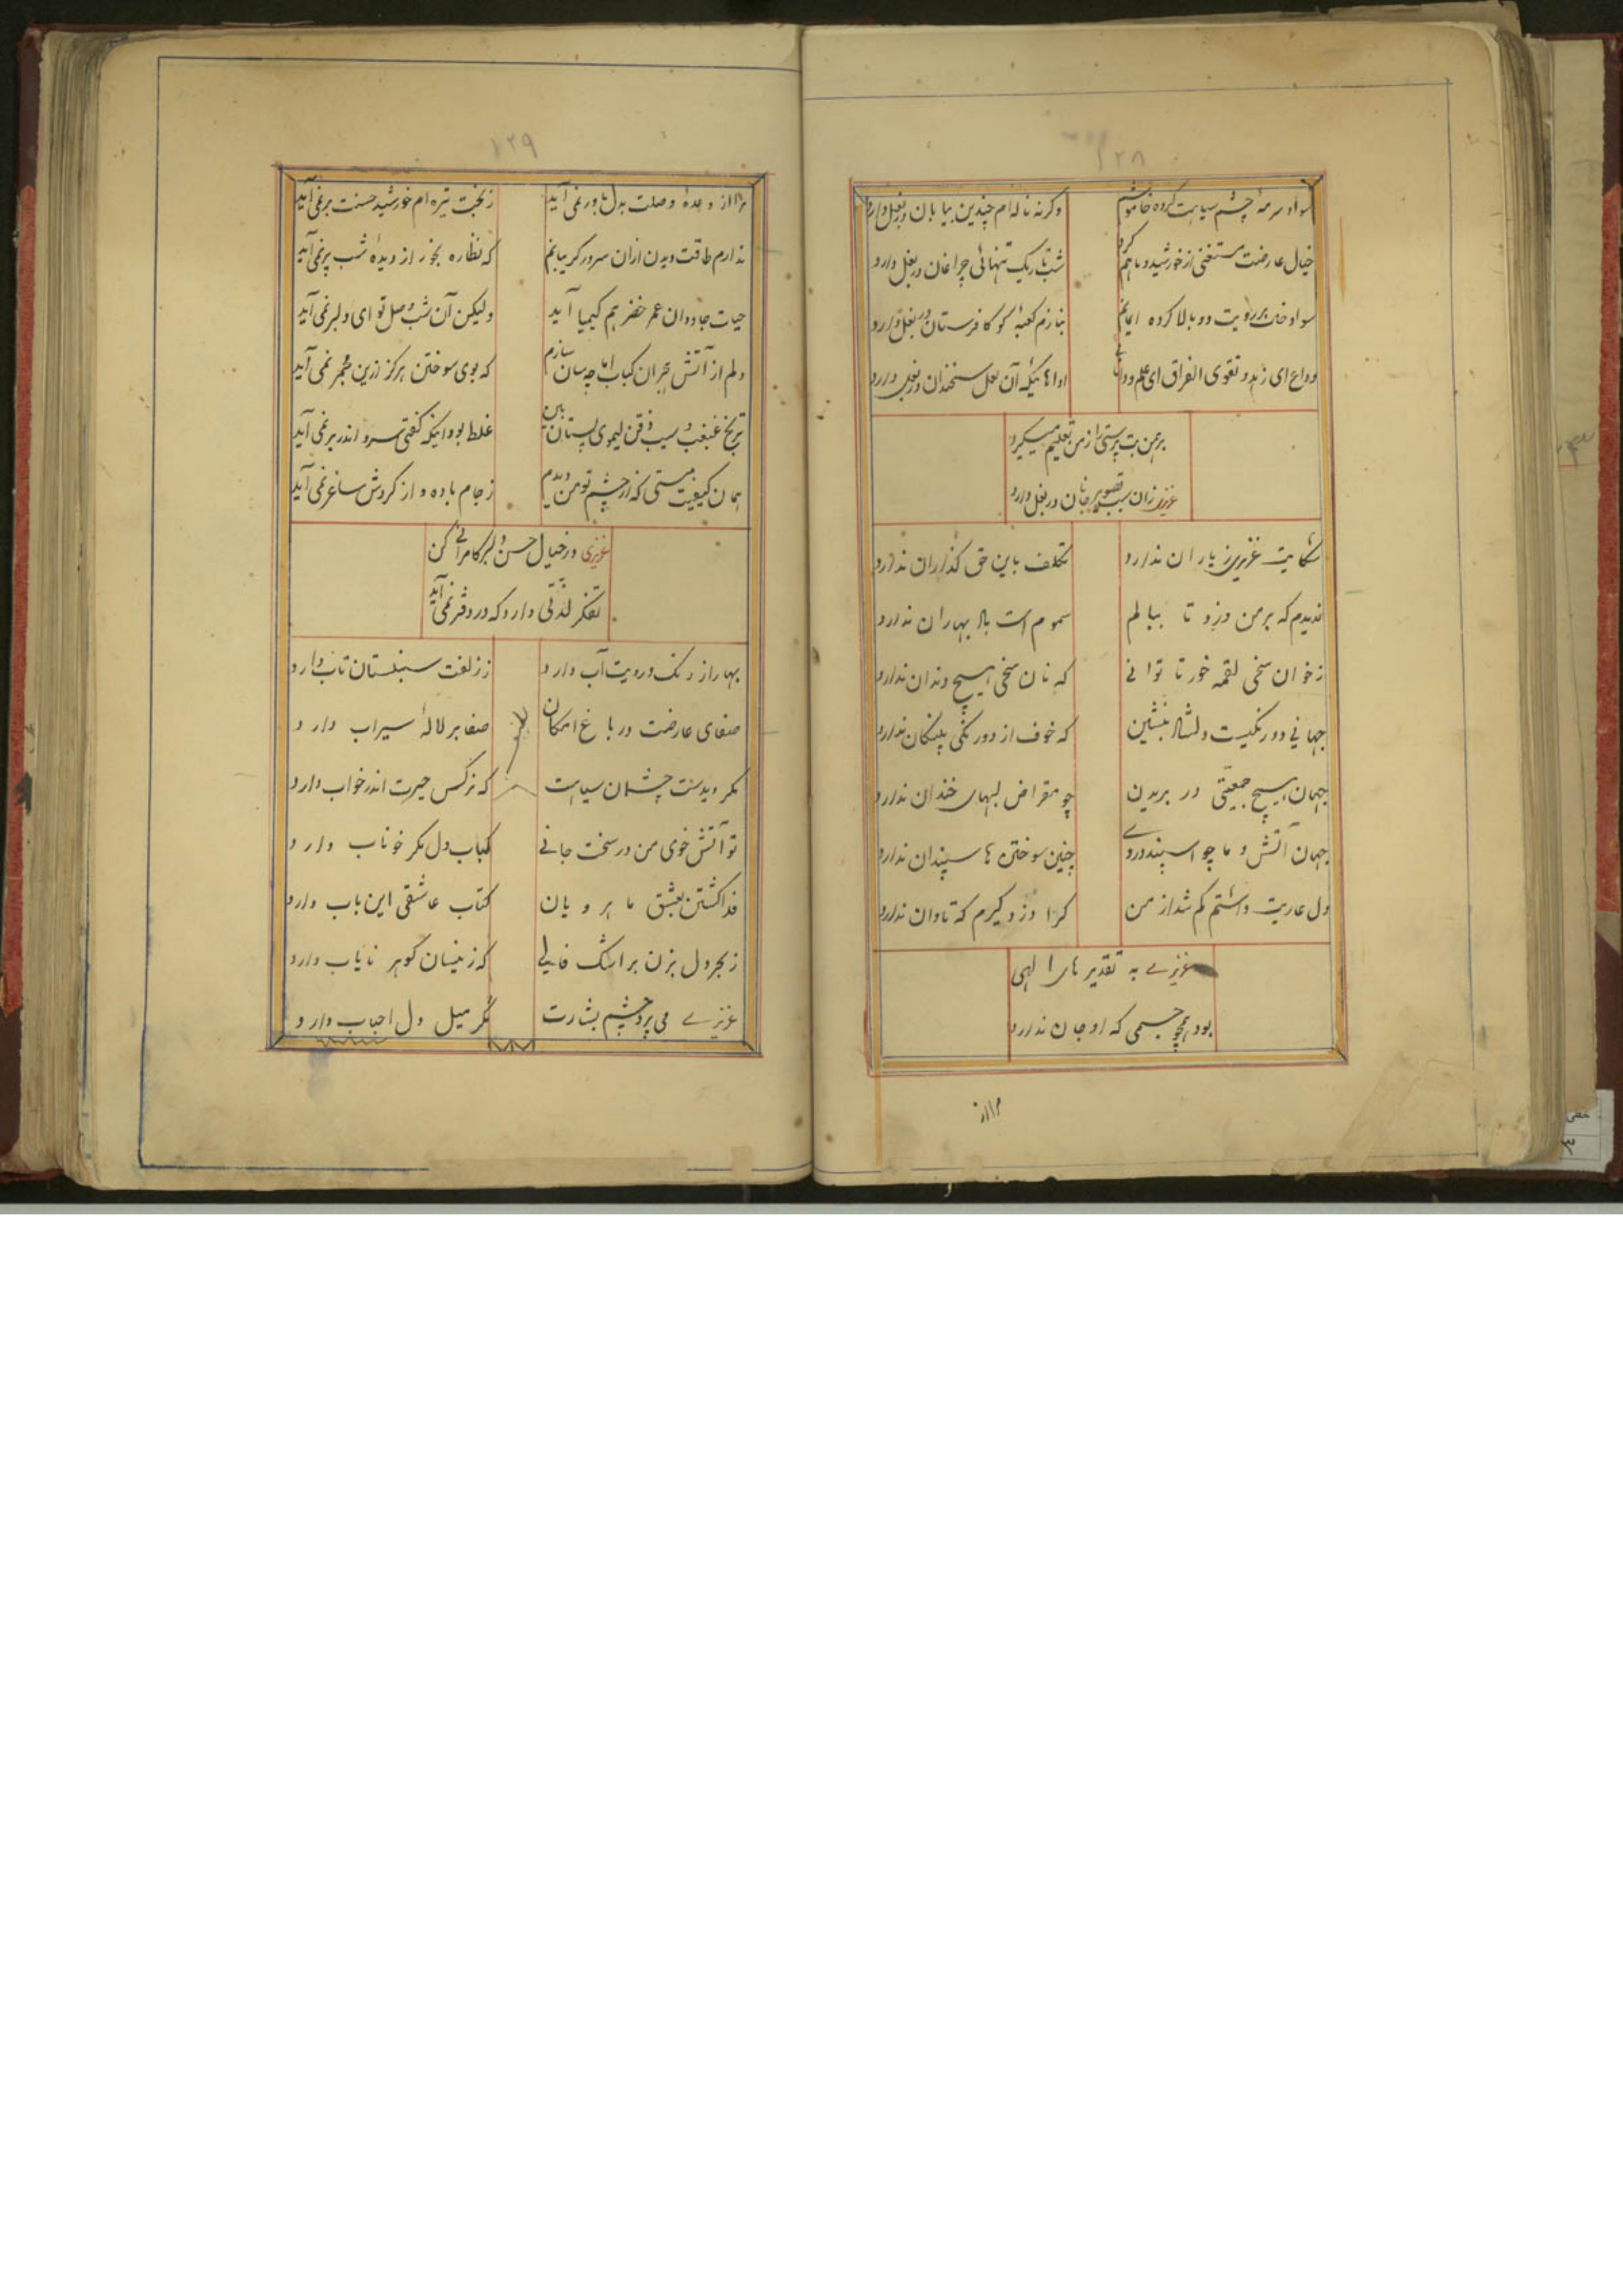 ۱۲۸
سواد سرمهٔ چشم سیاهت کرده خاموشم
وگرنه ناله‌ام چندین بیابان در بغل دارد
خیال عارضت مستغنی از خورشید و ماهم کرد
شب تاریک تنهائی چراغان در بغل دارد
سواد خط بر رویت دو بالا کرده ایمانم
بنازم کعبهٔ کو کافرستان در بغل دارد
وداع ای زهد و تقوی الفراق ای علم و دانائی
اداهائیکه آن لعل سخندان در بغل دارد
برهمن بت پرستی را ز من تعلیم میگیرد
عزیزی زان سبب تصویر جانان در بغل دارد
شکایت عزیزی ز یاران ندارد
تکلف باین حق گذاران ندارد
ندیدم که بر من وزد تا ببالم
سموم است باد بهاران ندارد
ز خوان سخی لقمه خور تا توانی
که نان سخی هیچ دندان ندارد
جهانی دو رنگیست دلشاد بنشین
که خوف از دو رنگی پلنگان ندارد
جهان هیچ جمعیتی در بریدن
چو مقراض لبهای خندان ندارد
جهان آتش و ما چو اسپند در وی
چنین سوختن ها سپندان ندارد
دل عاریت داشتم گم شد از من
کرا دزد گیرم که تاوان ندارد
عزیزی به تقدیرهای الهی
بود همچو جسمی که او جان ندارد
مرا از
۱۲۹
مرا از وعدهٔ وصلت بدل باور نمی‌آید
ز بخت تیره‌ام خورشید حسنت بر نمی‌آید
ندارم طاقت دیدن ازان سر در گریبانم
که نظاره بخور از دیدهٔ شب پر نمی‌آید
حیات جاودان عمر خضر هم کیمیا آید
ولیکن آن شب وصل تو ای دلبر نمی‌آید
دلم از آتش هجران کباب اما چه سان سازم
که بوی سوختن هرگز ازین مجمر نمی‌آید
ترنج غبغب و سیب ذقن لیموی پستان بین
غلط بود اینکه گفتی سرو اندر بر نمی‌آید
همان کیفیت مستی که از چشم تو من دیدم
ز جام باده و از گردش ساغر نمی‌آید
عزیزی در خیال حسن دلبر کامرانی کن
تفکر لذتی دارد که در دفتر نمی‌آید
بهار از رنگ و رویت آب دارد
ز زلفت سنبلستان تاب دارد
صفای عارضت در باغ امکان
صفا بر لالهٔ سیراب دارد
مگر دیدست چشمان سیاهت
که نرگس حیرت اندر خواب دارد
تو آتش خوی من در سخت جانی
کباب دل مگر خوناب دارد
فدا گشتن بعشق ماهرویان
کتاب عاشقی این باب دارد
ز بحر دل بزن بر اشک فالی
که ز نیسان گوهر نایاب دارد
عزیزی می پرد چشم بشارت
مگر میل دل احباب دارد